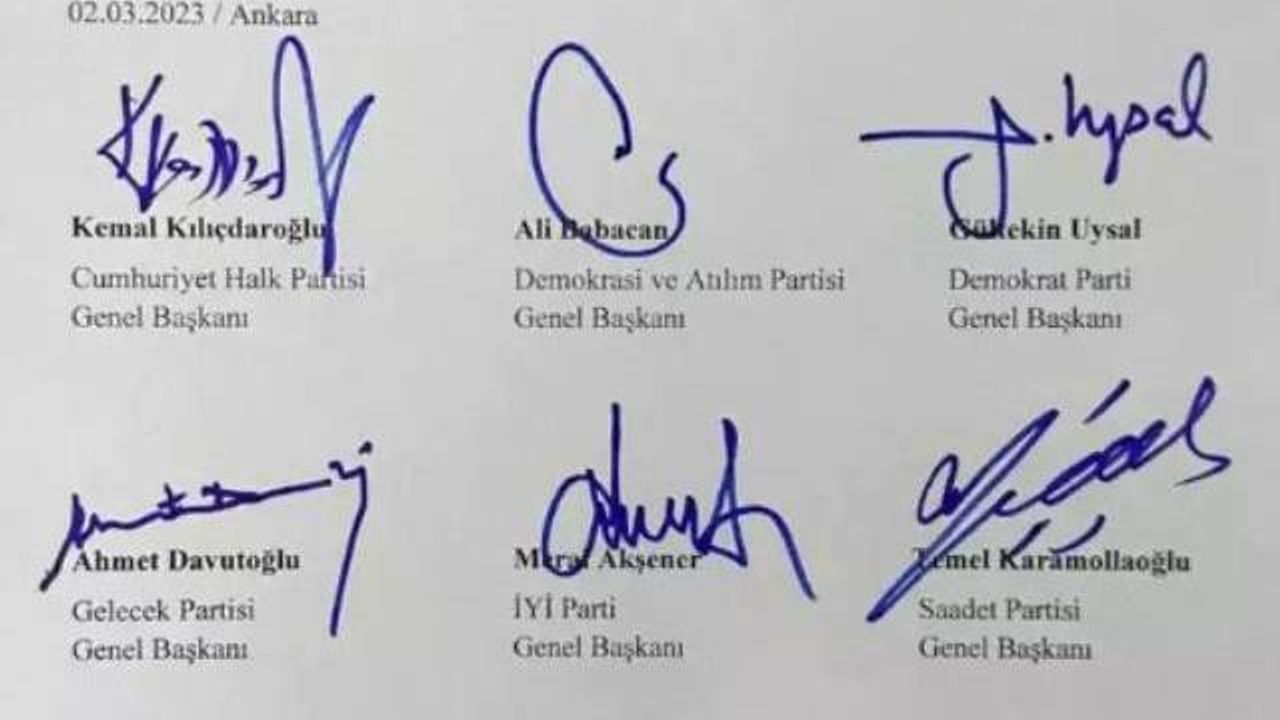 02.03.2023 / Ankara
Kemal Kılıçdaroğlu
Cumhuriyet Halk Partisi
Genel Başkanı
Ali Babacan
Demokrasi ve Atılım Partisi
Genel Başkanı
G. Uysal
Gültekin Uysal
Demokrat Parti
Genel Başkanı
Ahmet Davutoğlu
Gelecek Partisi
Genel Başkanı
Meral Akşener
İYİ Parti
Genel Başkanı
Temel Karamollaoğlu
Saadet Partisi
Genel Başkanı